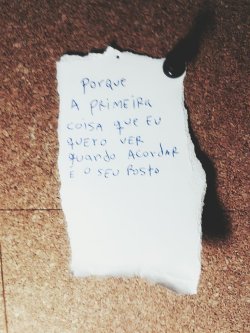 Porque
A PRIMEIRA
COISA que EU
quero VER
quando ACORDAR
E O SEU Rosto